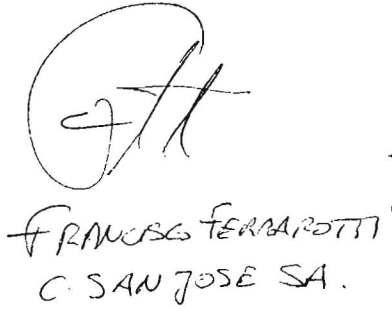 FRANCISCO FERRAROTTI
C. SAN JOSE SA.